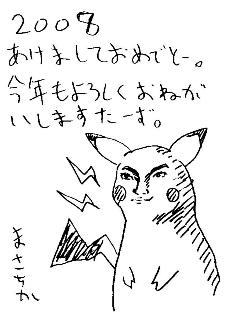 2008
あけましておめでとー。
今年もよろしくおねが
いしますたーず。
まさちか